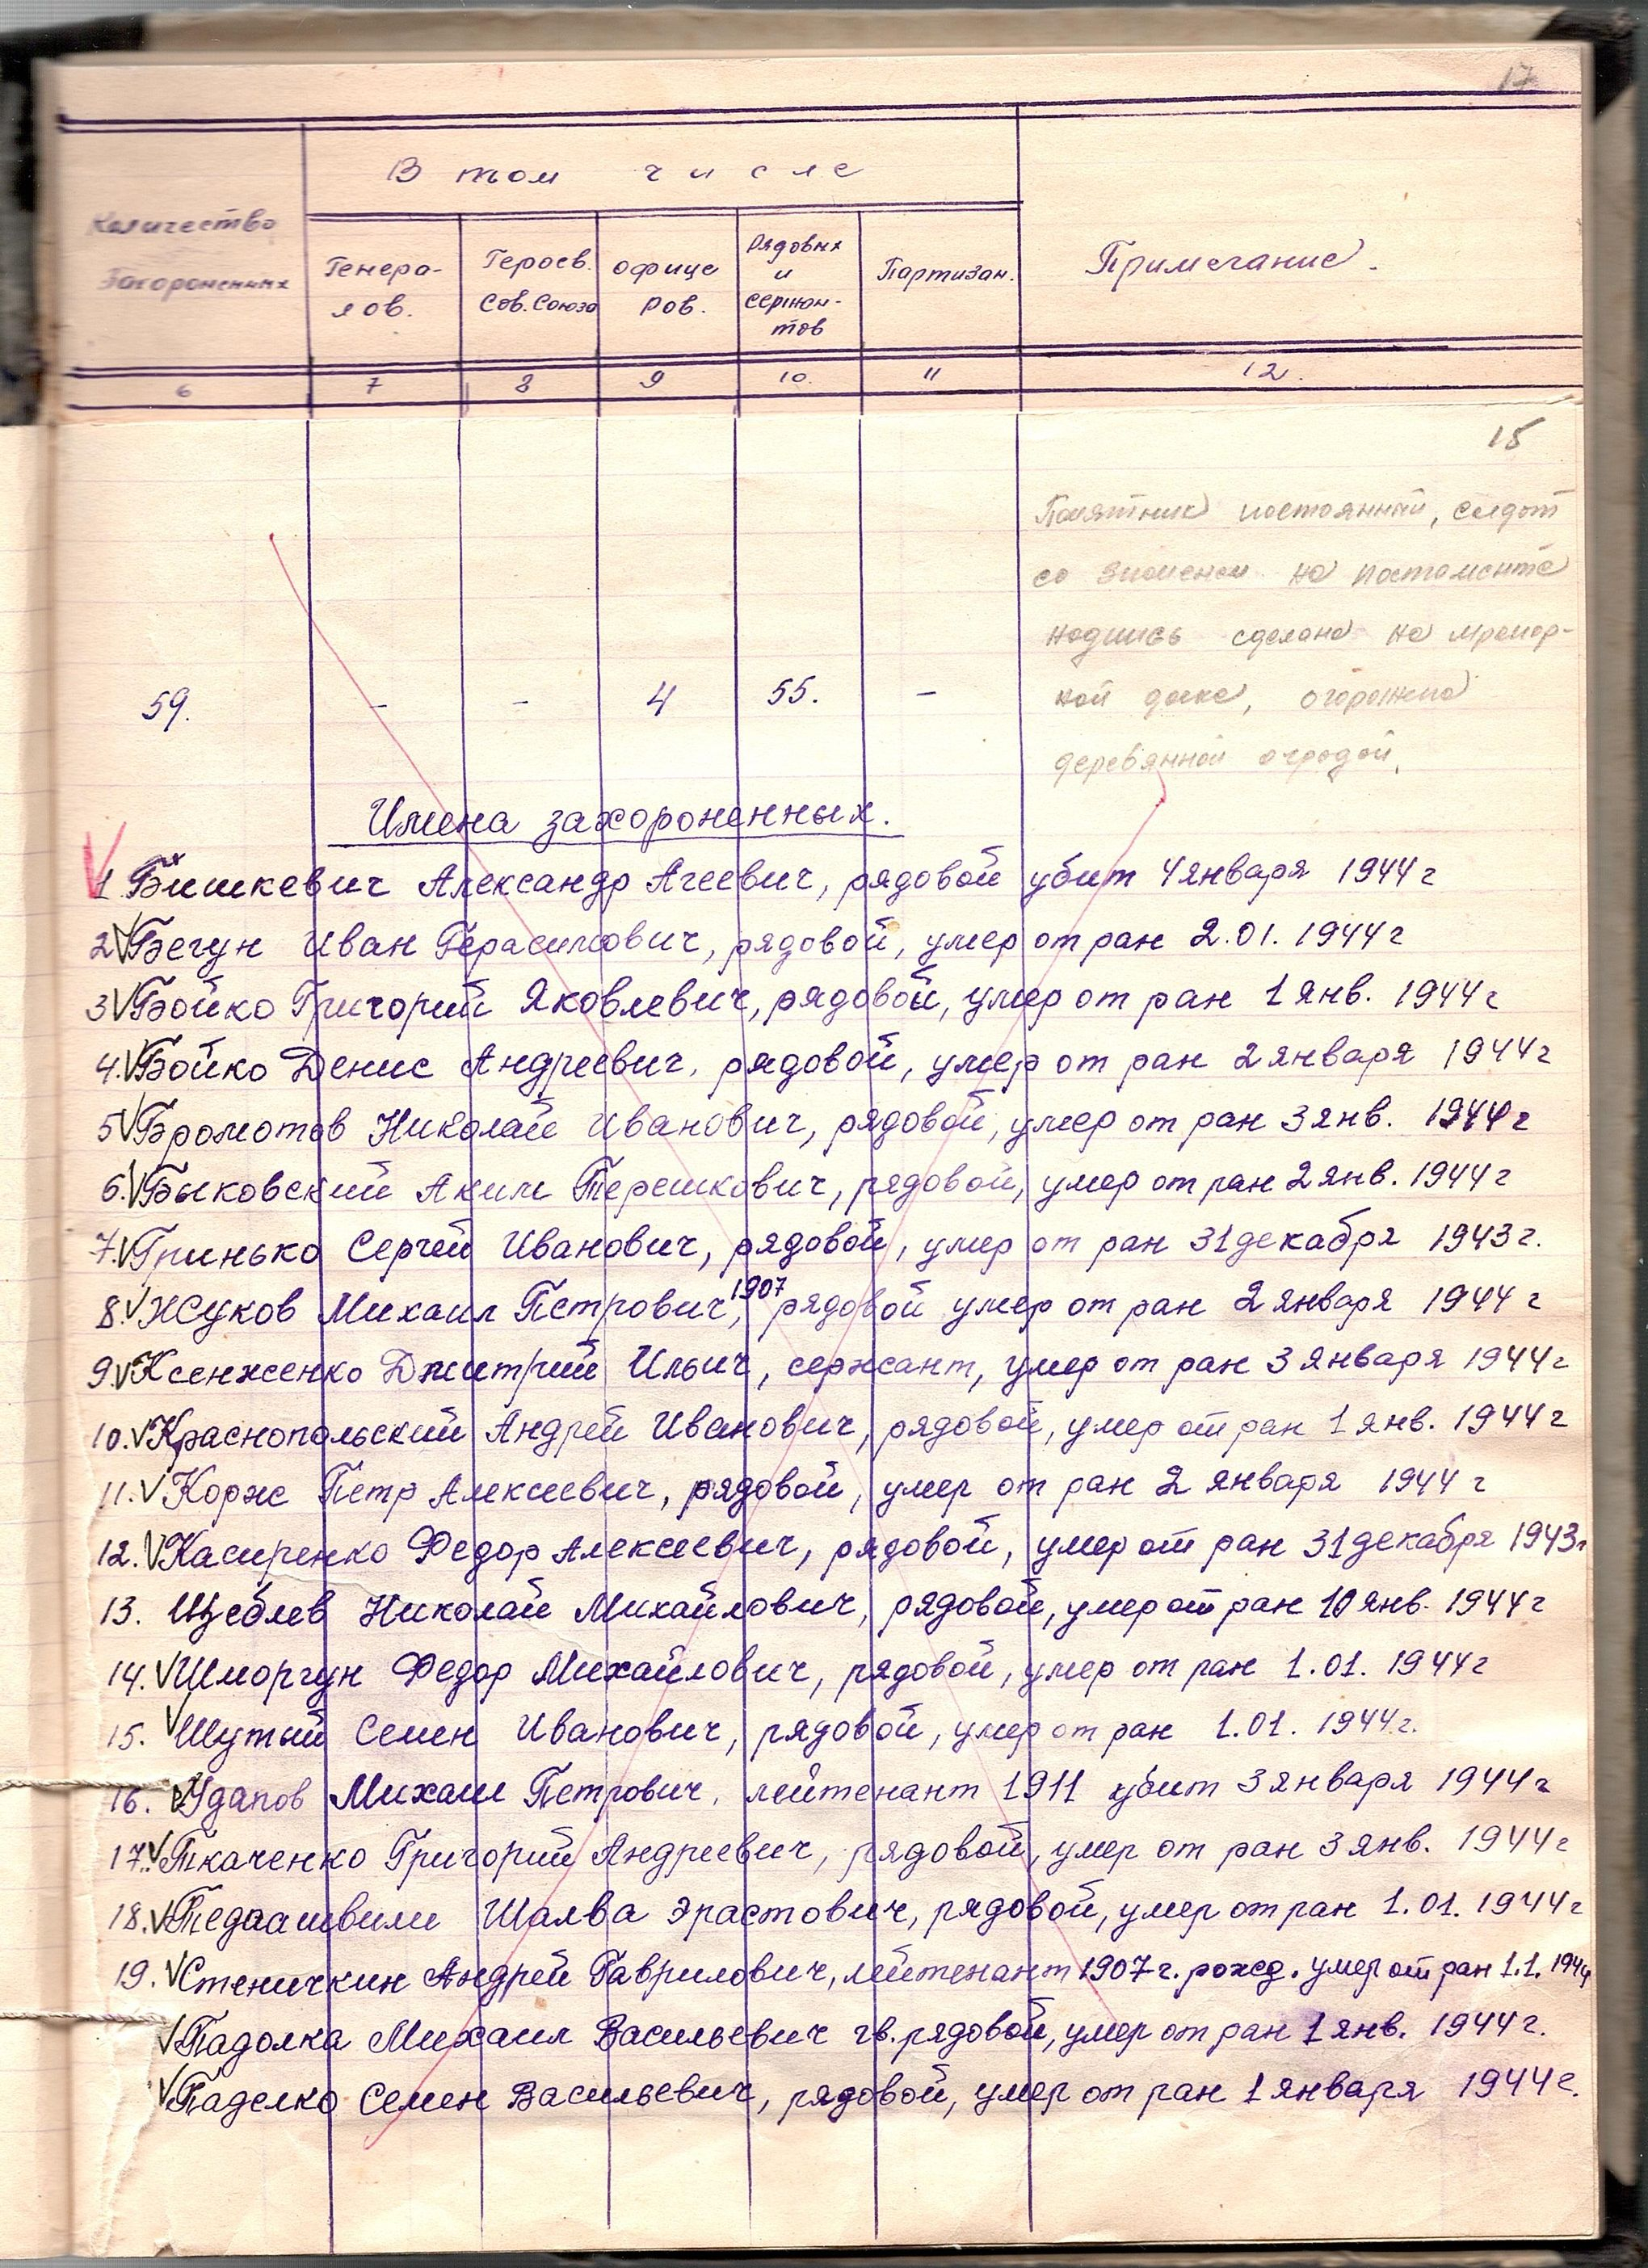 17
В том числе
Количество
Захороненных
Генера-
лов.
Героев.
Сов. Союза
офице
ров.
Рядовых
и
сержан-
тов
Партизан.
Примечание.
6 7 8 9 10. 11 12.
15
Памятник постоянный, солдат
со знаменем на постаменте
надпись сделана на мрамор-
ной доске, огорожена
деревянной оградой.
59. - - 4 55. -
Имена захороненных.
1. Бишкевич Александр Агеевич, рядовой убит 4 января 1944 г
2 Бегун Иван Герасимович, рядовой, умер от ран 2.01.1944 г
3 Бойко Григорий Яковлевич, рядовой, умер от ран 1 янв. 1944 г
4. Бойко Денис Андреевич, рядовой, умер от ран 2 января 1944 г
5 Бромотов Николай Иванович, рядовой, умер от ран 3 янв. 1944 г
6. Быковский Аким Терешкович, рядовой, умер от ран 2 янв. 1944 г
7. Гринько Сергей Иванович, рядовой, умер от ран 31 декабря 1943 г.
8. Жуков Михаил Петрович, 1907 рядовой умер от ран 2 января 1944 г
9. Ксенженко Дмитрий Ильич, сержант, умер от ран 3 января 1944 г
10. Краснопольский Андрей Иванович, рядовой, умер от ран 1 янв. 1944 г
11. Корж Петр Алексеевич, рядовой, умер от ран 2 января 1944 г
12. Касиренко Федор Алексеевич, рядовой, умер от ран 31 декабря 1943 г
13. Щеблев Николай Михайлович, рядовой, умер от ран 10 янв. 1944 г
14. Шморгун Федор Михайлович, рядовой, умер от ран 1.01.1944 г
15. Шутый Семен Иванович, рядовой, умер от ран 1.01.1944 г.
16. Удапов Михаил Петрович, лейтенант 1911 убит 3 января 1944 г
17. Ткаченко Григорий Андреевич, рядовой, умер от ран 3 янв. 1944 г
18. Тедаашвили Шалва Эрастович, рядовой, умер от ран 1.01.1944 г
19. Стеничкин Андрей Гаврилович, лейтенант 1907 г. рожд. умер от ран 1.1.1944
Падолка Михаил Васильевич гв. рядовой, умер от ран 1 янв. 1944 г.
Паделко Семен Васильевич, рядовой, умер от ран 1 января 1944 г.